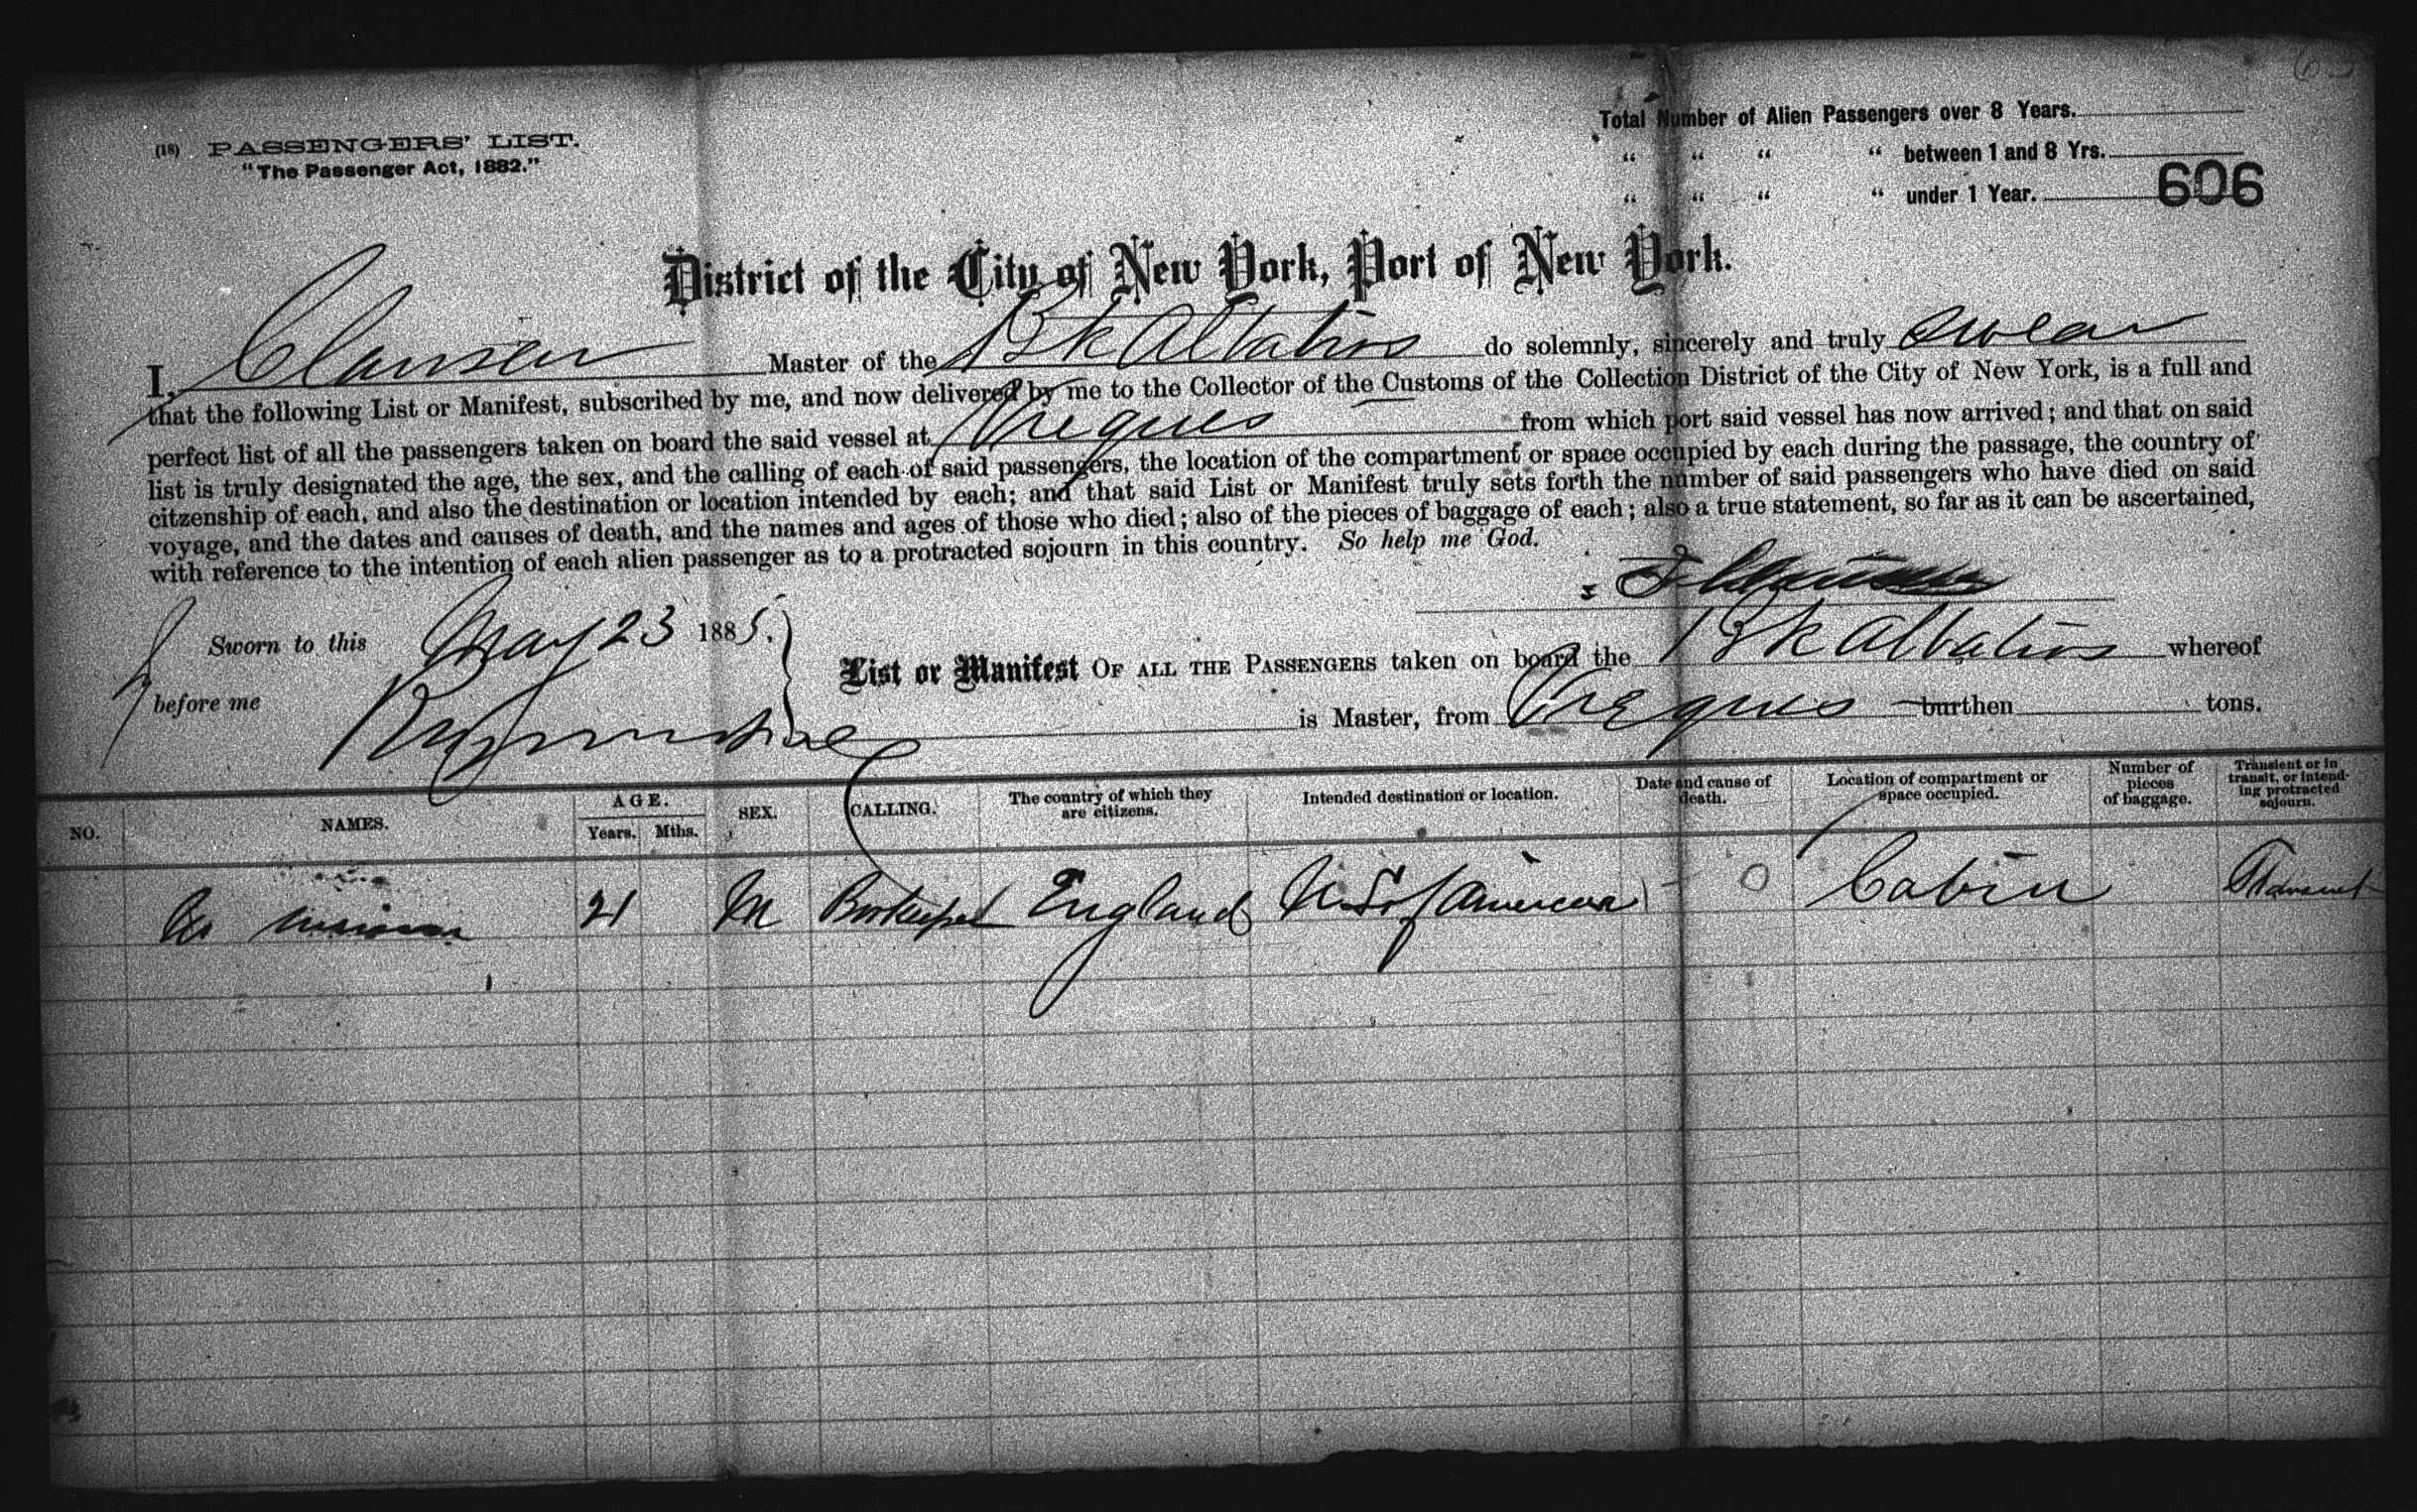 (18) PASSENGERS' LIST.
"The Passenger Act, 1882."
Total Number of Alien Passengers over 8 Years.
" " " " between 1 and 8 Yrs.
" " " " under 1 Year.
606
District of the City of New York, Port of New York.
I, Clausen Master of the Bk Albatros do solemnly, sincerely and truly swear
that the following List or Manifest, subscribed by me, and now delivered by me to the Collector of the Customs of the Collection District of the City of New York, is a full and
perfect list of all the passengers taken on board the said vessel at from which port said vessel has now arrived; and that on said
list is truly designated the age, the sex, and the calling of each of said passengers, the location of the compartment or space occupied by each during the passage, the country of
citzenship of each, and also the destination or location intended by each; and that said List or Manifest truly sets forth the number of said passengers who have died on said
voyage, and the dates and causes of death, and the names and ages of those who died; also of the pieces of baggage of each; also a true statement, so far as it can be ascertained,
with reference to the intention of each alien passenger as to a protracted sojourn in this country. So help me God.
Sworn to this May 23 1885.
before me
List or Manifest OF ALL THE PASSENGERS taken on board the Bk Albatros whereof
is Master, from burthen tons.
NO. NAMES. AGE. Years. Mths. SEX. CALLING. The country of which they are citizens. Intended destination or location. Date and cause of death. Location of compartment or space occupied. Number of pieces of baggage. Transient or in transit, or intending protracted sojourn.
21 M Bookeeper England U.S. of America O Cabin Transient